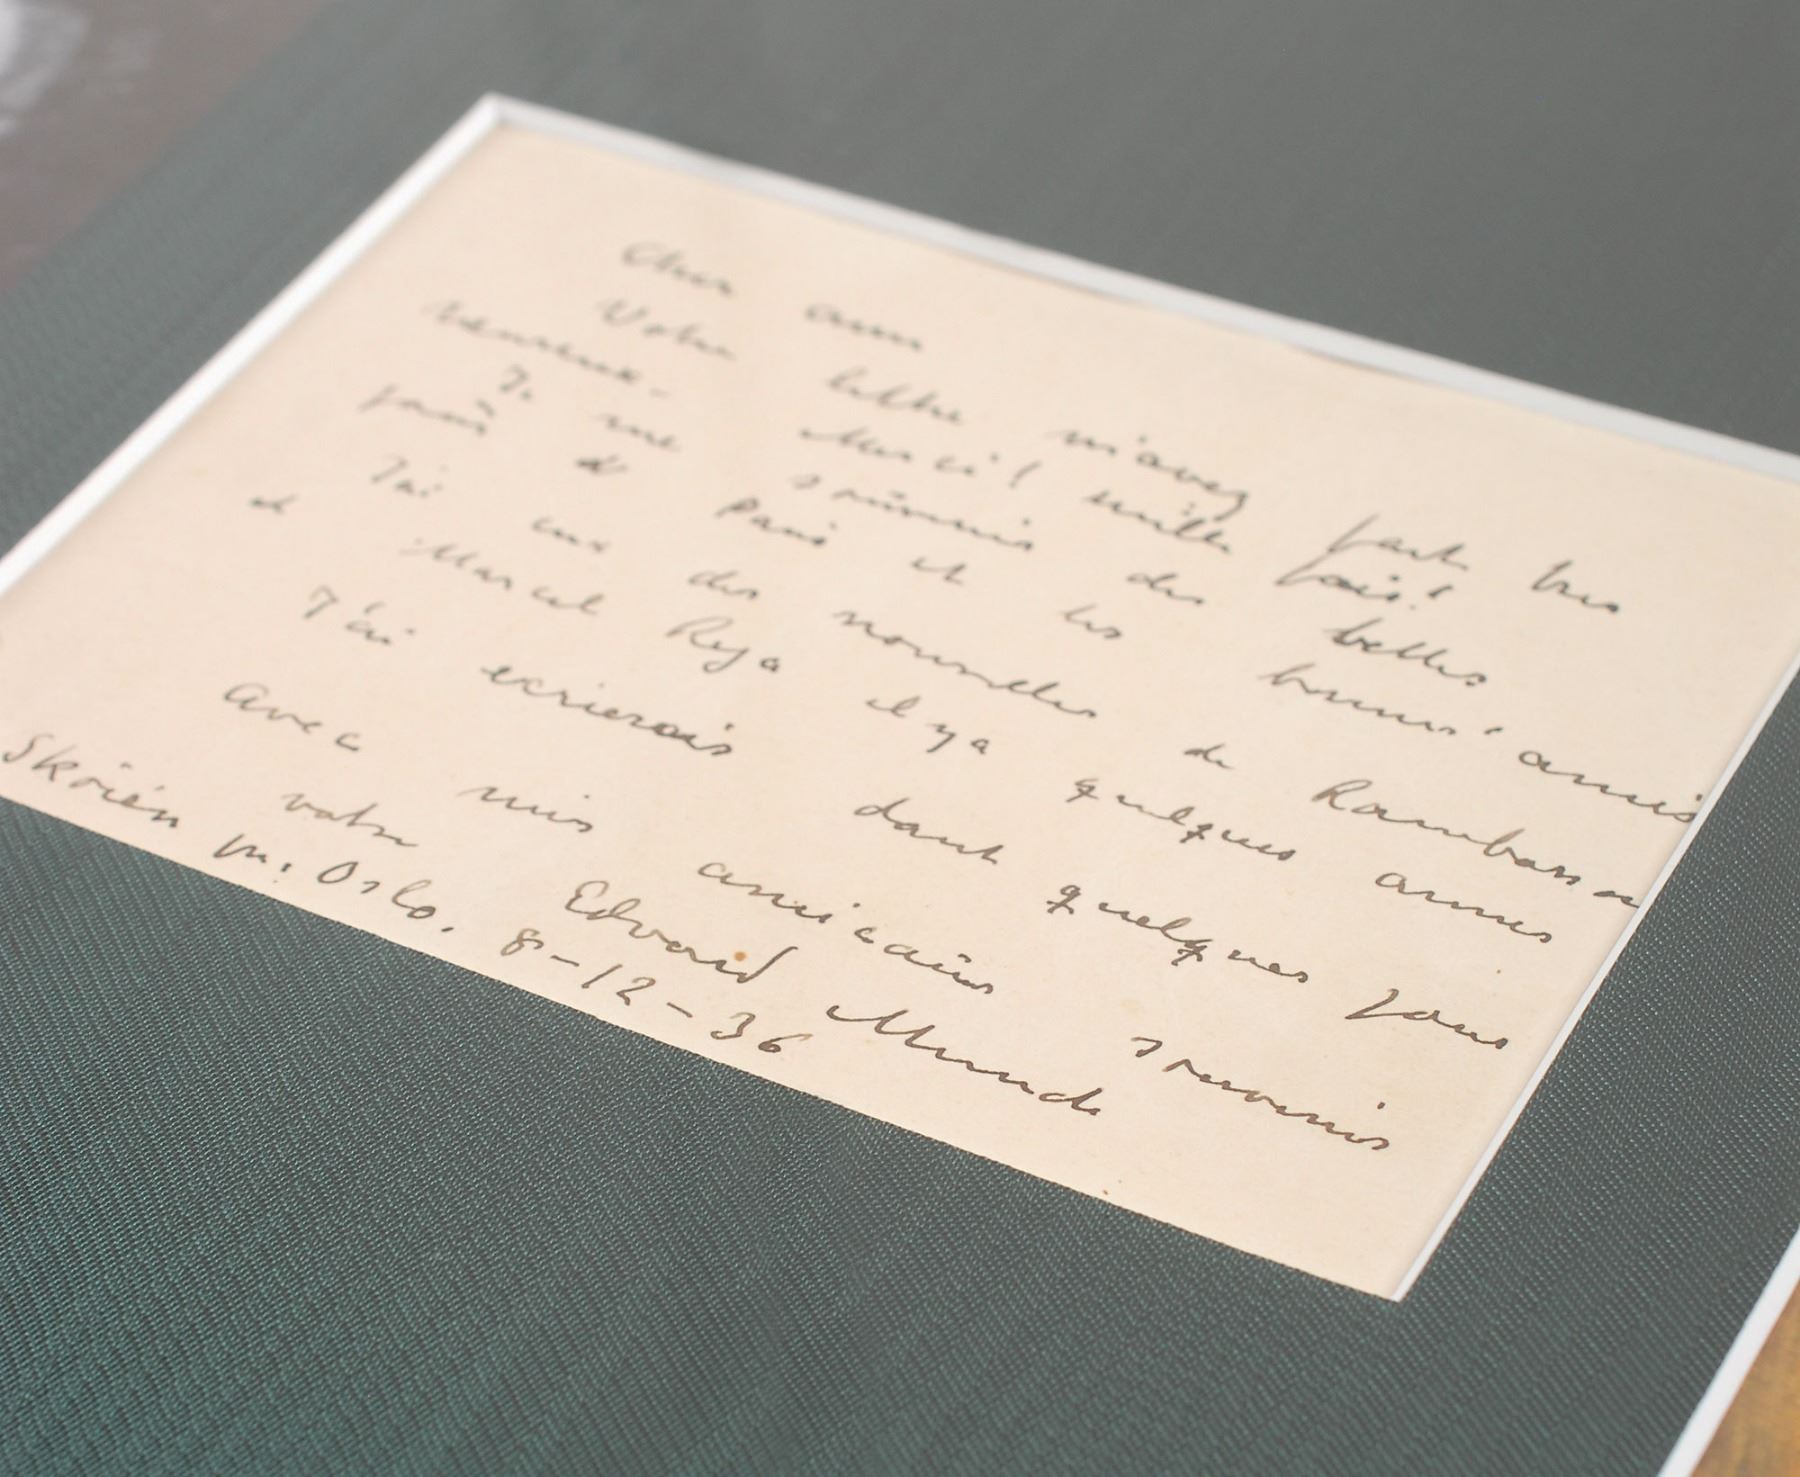 Cher ami
Votre lettre m'avez fait tres
heureux - Merci! mille fois!
Je me souviens des belles
jours d Paris et les bonnes amis
J'ai eu des nouvelles de Rambosson
et Marcel Reja il y a quelques annes
J'ai ecrierais dant quelques jours
avec mis amicains souvenirs
votre Edvard Munch
Skøien pr. Oslo. 8-12-36